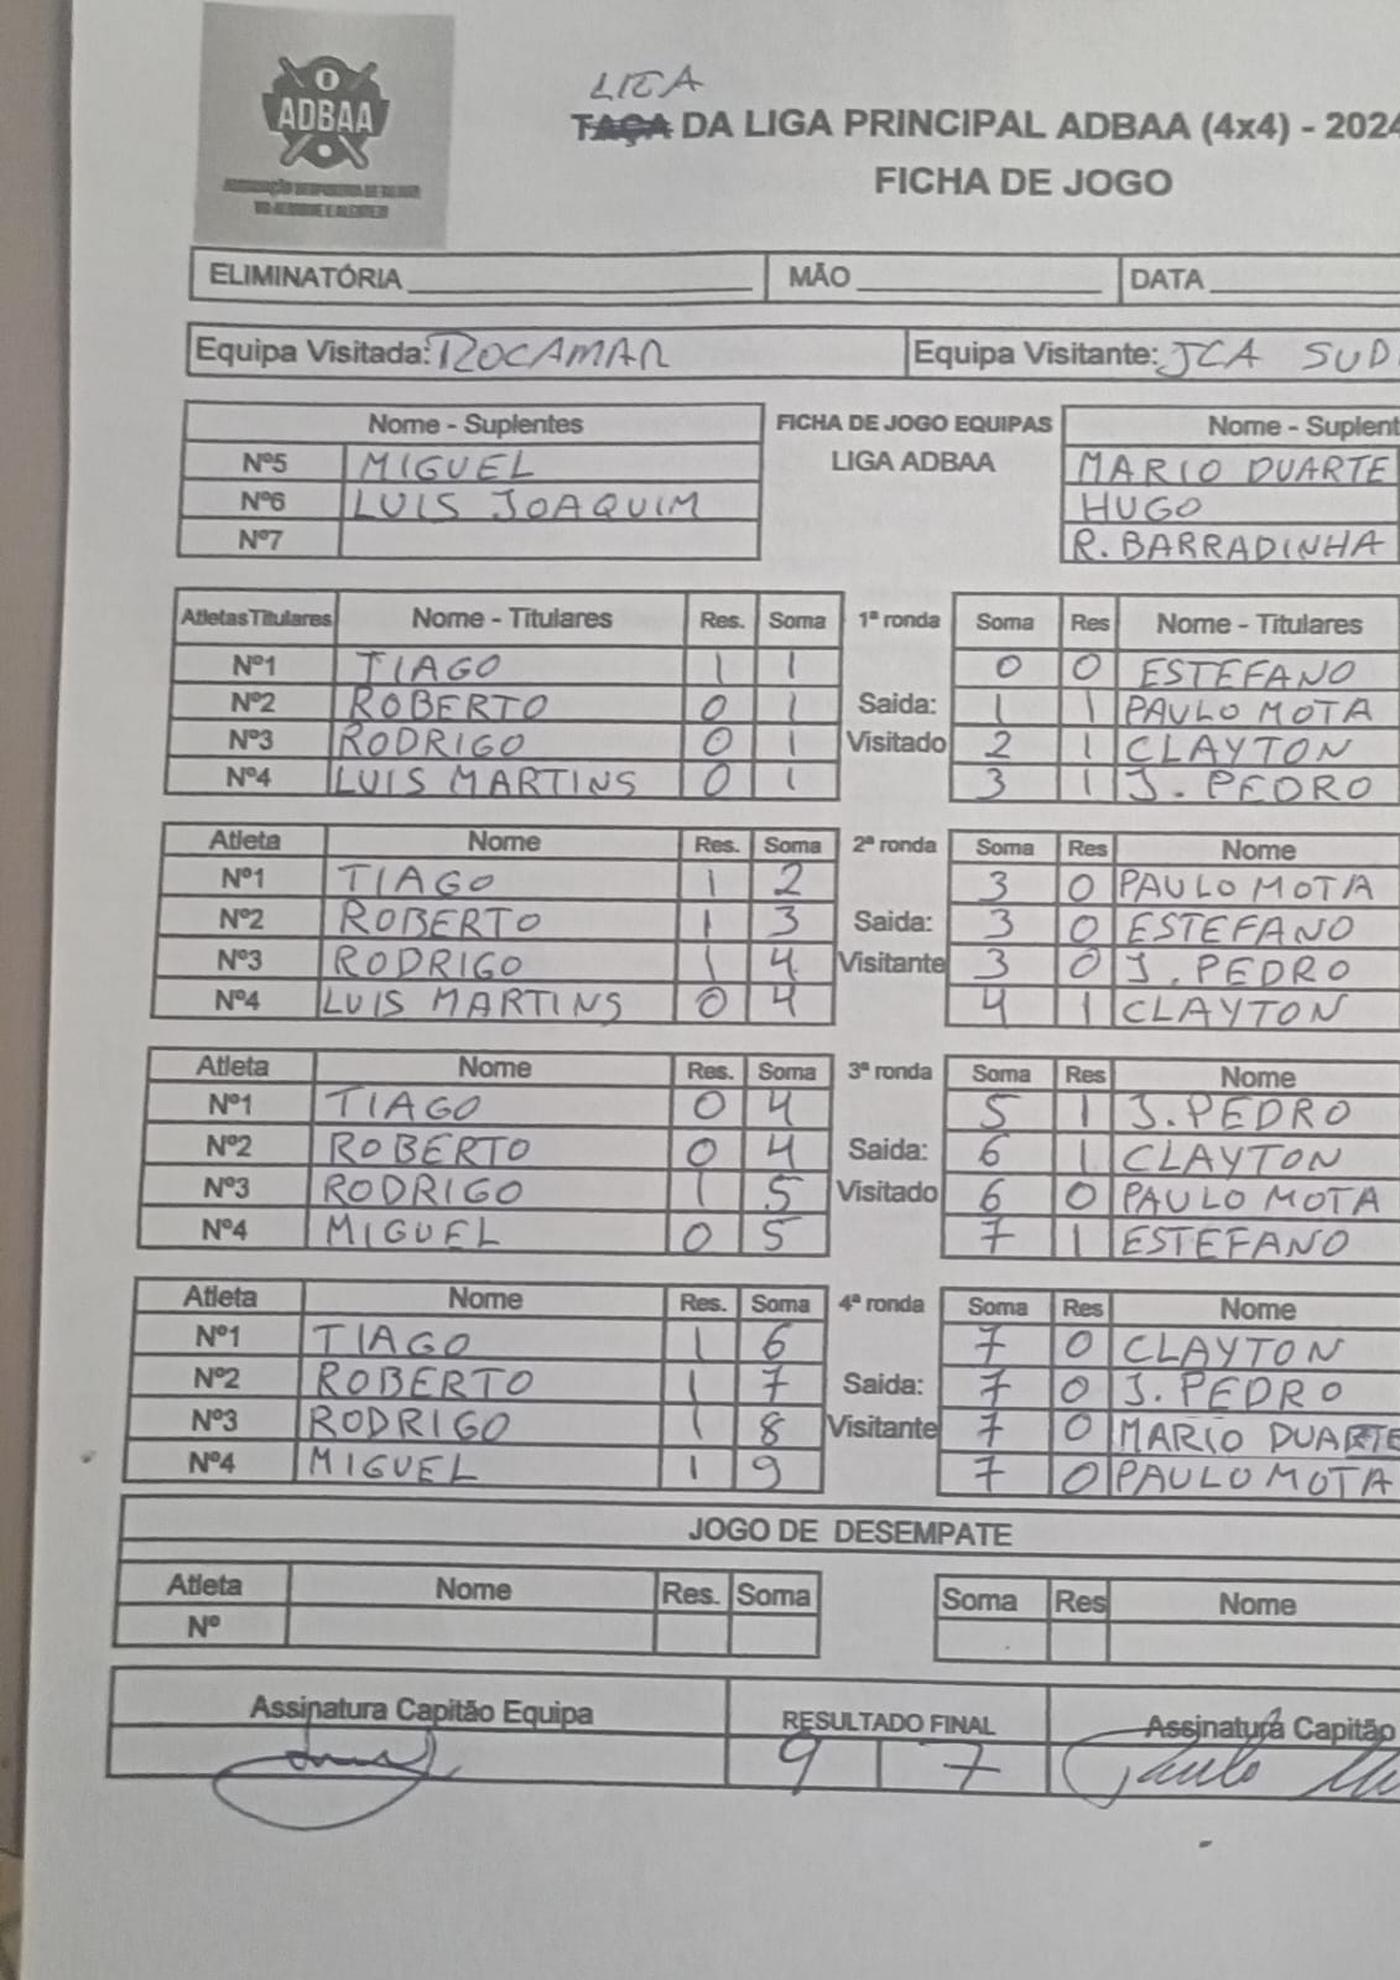 ADBAA
LIGA
TAÇA DA LIGA PRINCIPAL ADBAA (4x4) - 2024
FICHA DE JOGO
ELIMINATÓRIA MÃO DATA
Equipa Visitada: ROCAMAR Equipa Visitante: JCA SUD
Nome - Suplentes FICHA DE JOGO EQUIPAS Nome - Suplent
Nº5 MIGUEL LIGA ADBAA MARIO DUARTE
Nº6 LUIS JOAQUIM HUGO
Nº7 R. BARRADINHA
Atletas Titulares Nome - Titulares Res. Soma 1ª ronda Soma Res Nome - Titulares
Nº1 TIAGO 1 1 0 0 ESTEFANO
Nº2 ROBERTO 0 1 Saida: 1 1 PAULO MOTA
Nº3 RODRIGO 0 1 Visitado 2 1 CLAYTON
Nº4 LUIS MARTINS 0 1 3 1 J. PEDRO
Atleta Nome Res. Soma 2ª ronda Soma Res Nome
Nº1 TIAGO 1 2 3 0 PAULO MOTA
Nº2 ROBERTO 1 3 Saida: 3 0 ESTEFANO
Nº3 RODRIGO 1 4 Visitante 3 0 J. PEDRO
Nº4 LUIS MARTINS 0 4 4 1 CLAYTON
Atleta Nome Res. Soma 3ª ronda Soma Res Nome
Nº1 TIAGO 0 4 5 1 J. PEDRO
Nº2 ROBERTO 0 4 Saida: 6 1 CLAYTON
Nº3 RODRIGO 1 5 Visitado 6 0 PAULO MOTA
Nº4 MIGUEL 0 5 7 1 ESTEFANO
Atleta Nome Res. Soma 4ª ronda Soma Res Nome
Nº1 TIAGO 1 6 7 0 CLAYTON
Nº2 ROBERTO 1 7 Saida: 7 0 J. PEDRO
Nº3 RODRIGO 1 8 Visitante 7 0 MARIO DUARTE
Nº4 MIGUEL 1 9 7 0 PAULO MOTA
JOGO DE DESEMPATE
Atleta Nome Res. Soma Soma Res Nome
Nº
Assinatura Capitão Equipa RESULTADO FINAL Assinatura Capitão
9 7 Paulo